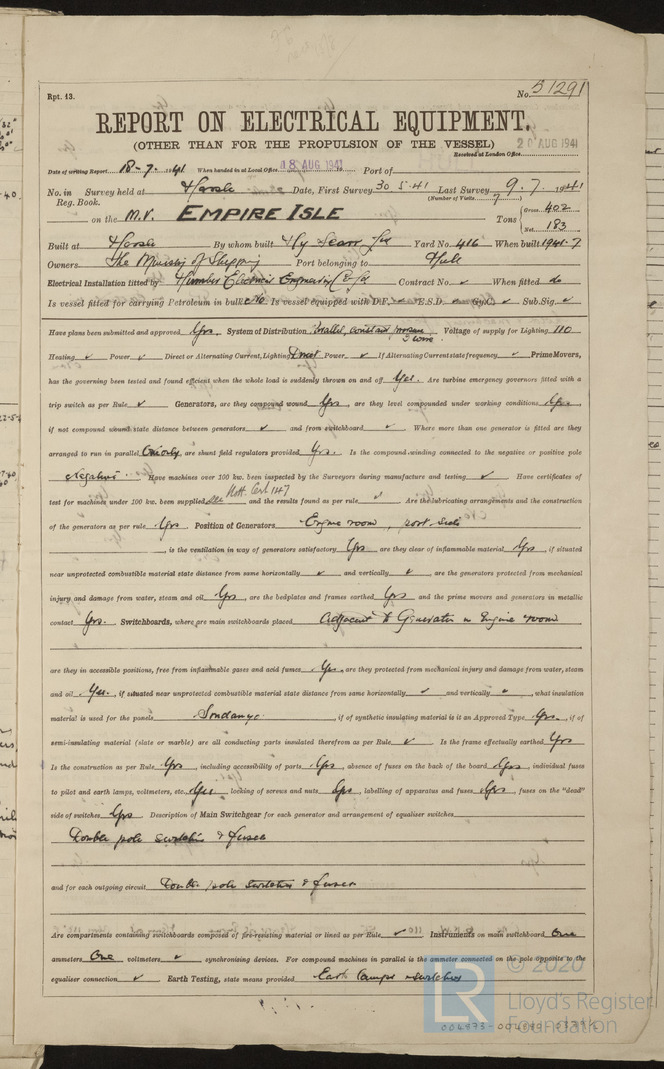 Rpt. 13.
No. 51291
REPORT ON ELECTRICAL EQUIPMENT.
(OTHER THAN FOR THE PROPULSION OF THE VESSEL)
Received at London Office 20 AUG 1941
Date of writing Report 18-7-1941 When handed in at Local Office 18 AUG 1941 Port of
No. in Survey held at Hessle Date, First Survey 30.5.41 Last Survey 9.7.1941
Reg. Book. (Number of Visits 7)
on the M.V. EMPIRE ISLE Tons { Gross 402
Net 183
Built at Hessle By whom built Hy Scarr Ltd Yard No. 416 When built 1941-7
Owners The Ministry of Shipping Port belonging to Hull
Electrical Installation fitted by Humber Electrical Engineering Co Ltd Contract No. ✓ When fitted do
Is vessel fitted for carrying Petroleum in bulk No Is vessel equipped with D.F. E.S.D. Gy.C. ✓ Sub.Sig. ✓
Have plans been submitted and approved Yes. System of Distribution Parallel, constant pressure 2 wire Voltage of supply for Lighting 110
Heating ✓ Power ✓ Direct or Alternating Current, Lighting Direct Power ✓ If Alternating Current state frequency ✓ Prime Movers,
has the governing been tested and found efficient when the whole load is suddenly thrown on and off Yes. Are turbine emergency governors fitted with a
trip switch as per Rule ✓ Generators, are they compound wound Yes, are they level compounded under working conditions Yes.,
if not compound wound state distance between generators ✓ and from switchboard ✓ Where more than one generator is fitted are they
arranged to run in parallel One only are shunt field regulators provided Yes. Is the compound winding connected to the negative or positive pole
Negative. Have machines over 100 kw. been inspected by the Surveyors during manufacture and testing ✓ Have certificates of
test for machines under 100 kw. been supplied See Nott. Cert. 1247 and the results found as per rule ✓ Are the lubricating arrangements and the construction
of the generators as per rule Yes Position of Generators Engine room, port side
, is the ventilation in way of generators satisfactory Yes are they clear of inflammable material Yes, if situated
near unprotected combustible material state distance from same horizontally ✓ and vertically ✓, are the generators protected from mechanical
injury and damage from water, steam and oil Yes, are the bedplates and frames earthed Yes and the prime movers and generators in metallic
contact Yes. Switchboards, where are main switchboards placed Adjacent to Generator in Engine room
are they in accessible positions, free from inflammable gases and acid fumes Yes. are they protected from mechanical injury and damage from water, steam
and oil Yes., if situated near unprotected combustible material state distance from same horizontally ✓ and vertically ✓, what insulation
material is used for the panels Sindanyo, if of synthetic insulating material is it an Approved Type Yes., if of
semi-insulating material (slate or marble) are all conducting parts insulated therefrom as per Rule ✓ Is the frame effectually earthed Yes
Is the construction as per Rule Yes, including accessibility of parts Yes, absence of fuses on the back of the board Yes, individual fuses
to pilot and earth lamps, voltmeters, etc. Yes locking of screws and nuts Yes, labelling of apparatus and fuses Yes, fuses on the "dead"
side of switches Yes. Description of Main Switchgear for each generator and arrangement of equaliser switches
Double pole switches & fuses
and for each outgoing circuit Double pole switches & fuses
Are compartments containing switchboards composed of fire-resisting material or lined as per Rule ✓ Instruments on main switchboard One
ammeters One voltmeters ✓ synchronising devices. For compound machines in parallel is the ammeter connected on the pole opposite to the
equaliser connection ✓ Earth Testing, state means provided Earth lamps & switches
© 2020
Lloyd's Register
Foundation